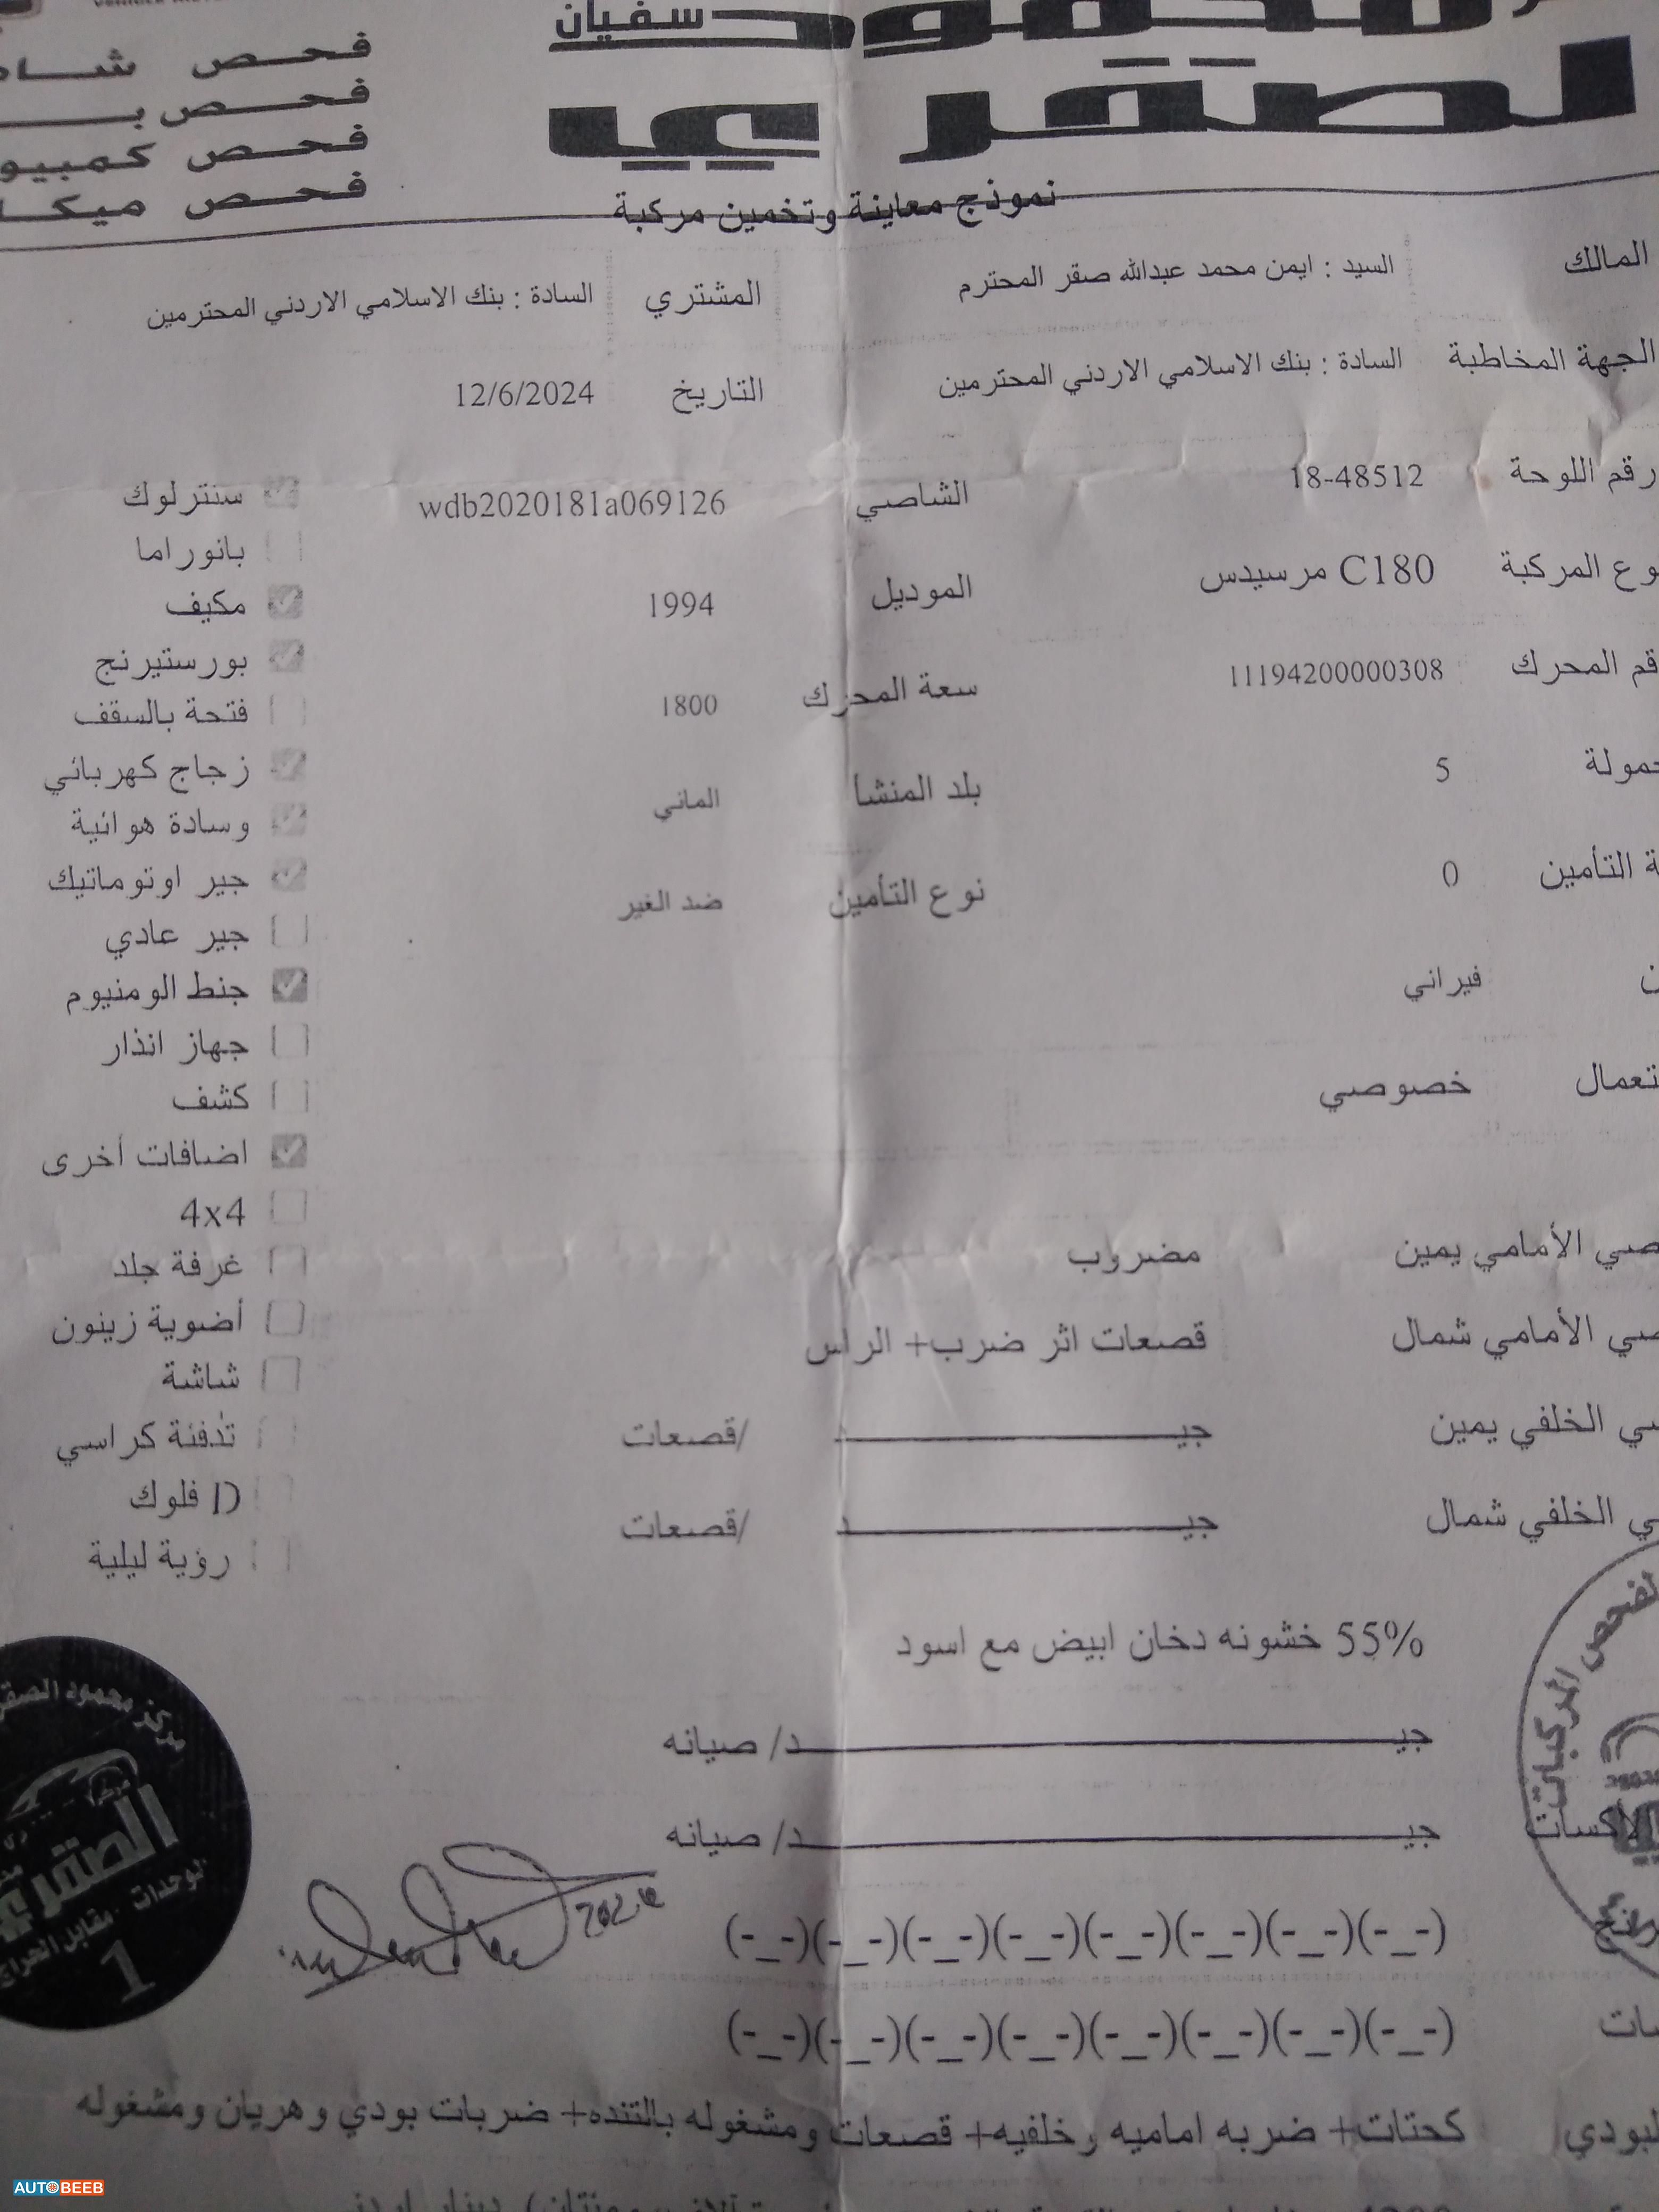 سفيان
محمود
لصقري
فحص
فحص
فحص
فحص
نموذج معاينة وتخمين مركبة
المالك السيد : ايمن محمد عبدالله صقر المحترم المشتري السادة : بنك الاسلامي الاردني المحترمين
الجهة المخاطبة السادة : بنك الاسلامي الاردني المحترمين التاريخ 12/6/2024
رقم اللوحة 18-48512 الشاصي wdb2020181a069126
وع المركبة C180 مرسيدس الموديل 1994
قم المحرك 11194200000308 سعة المحرك 1800
حمولة 5 بلد المنشأ الماني
ة التأمين 0 نوع التأمين ضد الغير
ن فيراني
تعمال خصوصي
سنترلوك
بانوراما
مكيف
بورستيرنج
فتحة بالسقف
زجاج كهربائي
وسادة هوائية
جير اوتوماتيك
جير عادي
جنط الومنيوم
جهاز انذار
كشف
اضافات أخرى
4x4
غرفة جلد
أضوية زينون
شاشة
تدفئة كراسي
D فلوك
رؤية ليلية
صي الأمامي يمين مضروب
صي الأمامي شمال قصعات اثر ضرب+ الراس
سي الخلفي يمين جيــــــد /قصعات
ي الخلفي شمال جيــــــد /قصعات
55% خشونه دخان ابيض مع اسود
جيــــــد/ صيانه
الاكسات جيــــــد/ صيانه
(-_-)(-_-)(-_-)(-_-)(-_-)(-_-)(-_-)(-_-)
(-_-)(-_-)(-_-)(-_-)(-_-)(-_-)(-_-)(-_-)
لبودي كحتات+ ضربه اماميه وخلفيه+ قصعات ومشغوله بالتنده+ ضربات بودي وهريان ومشغوله
لفحص المركبات
مركز محمود الصقر
الصقري
لوحدات - مقابل الحراج
1
AUTOBEEB